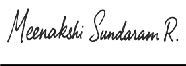 Meenakshi Sundaram R.